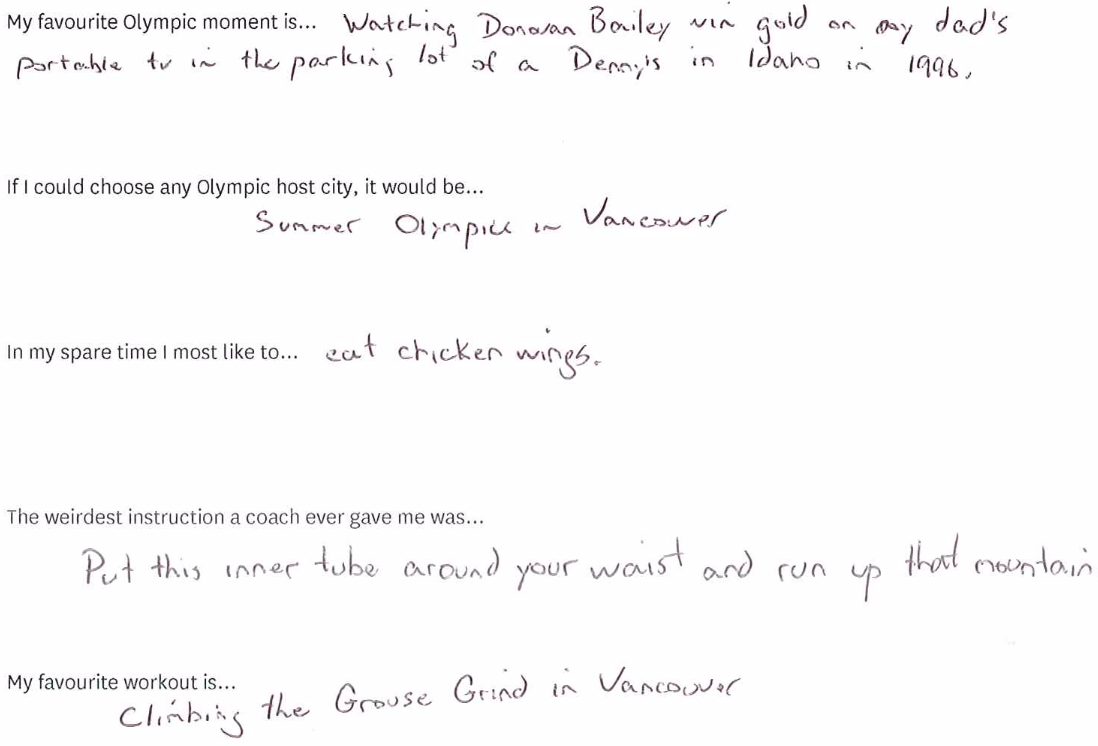 My favourite Olympic moment is... Watching Donovan Bailey win gold on my dad's
portable tv in the parking lot of a Denny's in Idaho in 1996.
If I could choose any Olympic host city, it would be...
Summer Olympics in Vancouver
In my spare time I most like to... eat chicken wings.
The weirdest instruction a coach ever gave me was...
Put this inner tube around your waist and run up that mountain
My favourite workout is...
Climbing the Grouse Grind in Vancouver